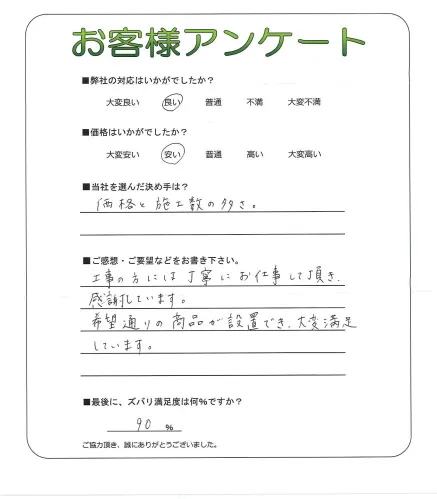 お客様アンケート
■弊社の対応はいかがでしたか？
大変良い 良い 普通 不満 大変不満
■価格はいかがでしたか？
大変安い 安い 普通 高い 大変高い
■当社を選んだ決め手は？
価格と施工数の多さ。
■ご感想・ご要望などをお書き下さい。
工事の方には丁寧にお仕事して頂き、
感謝しています。
希望通りの商品が設置でき、大変満足
しています。
■最後に、ズバリ満足度は何％ですか？
90 %
ご協力頂き、誠にありがとうございました。